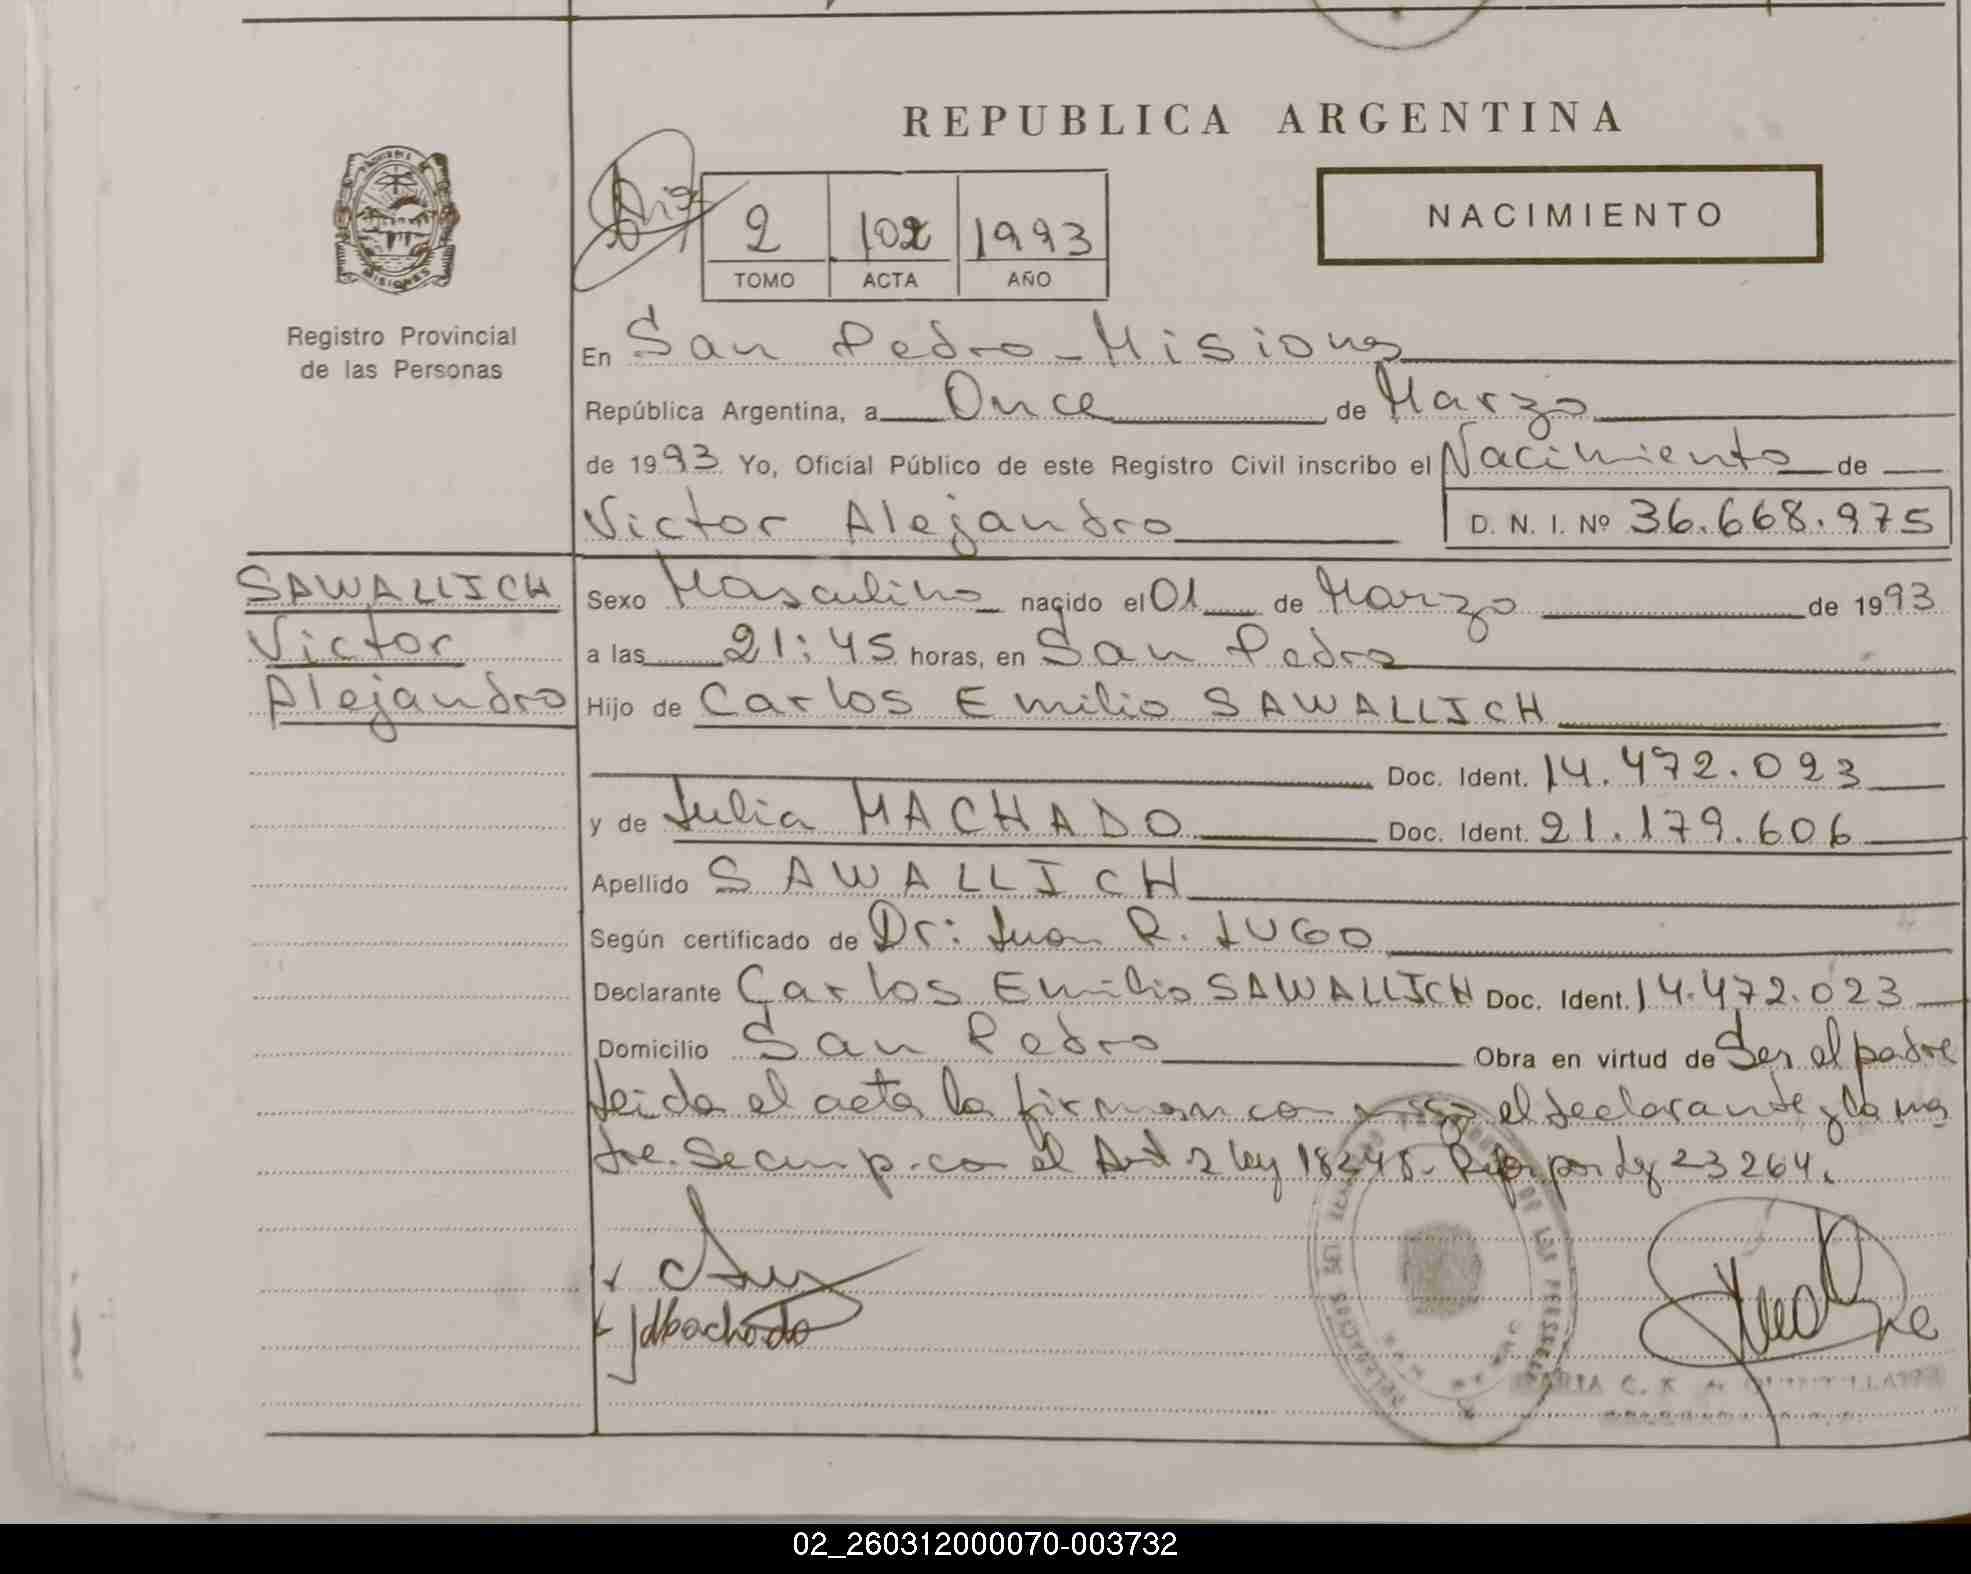 REPUBLICA ARGENTINA
NACIMIENTO
2 102 1993
TOMO ACTA AÑO
MISIONES
Registro Provincial
de las Personas
En San Pedro - Misiones
República Argentina, a Once de Marzo
de 1993 Yo, Oficial Público de este Registro Civil inscribo el Nacimiento de
Victor Alejandro D. N. I. Nº 36.668.975
SAWALLICH
Victor
Alejandro
Sexo Masculino nacido el 01 de Marzo de 1993
a las 21:45 horas, en San Pedro
Hijo de Carlos Emilio SAWALLICH
Doc. Ident. 14.472.023
y de Julia MACHADO Doc. Ident. 21.179.606
Apellido SAWALLICH
Según certificado de Dr: Juan R. LUGO
Declarante Carlos Emilio SAWALLICH Doc. Ident. 14.472.023
Domicilio San Pedro Obra en virtud de Ser el padre
Leida el acta la firman con migo el declarante y la ma
dre. Se cump. con el Art 2 ley 18248. Ref por Ley 23264.
02_260312000070-003732